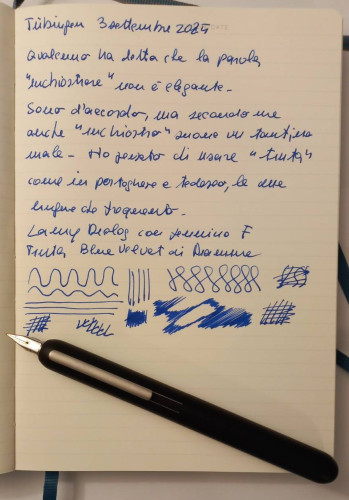 Tübingen 3 settembre 2024
Qualcuno ha detto che la parola
"inchiostrare" non è elegante.
Sono d'accordo, ma secondo me
anche "inchiostro" suona un tantino
male. Ho pensato di usare "tinta,"
come in portoghese e tedesco, le due
lingue che frequento.
Lamy Dialog con pennino F
Tinta Blue Velvet di Diamine